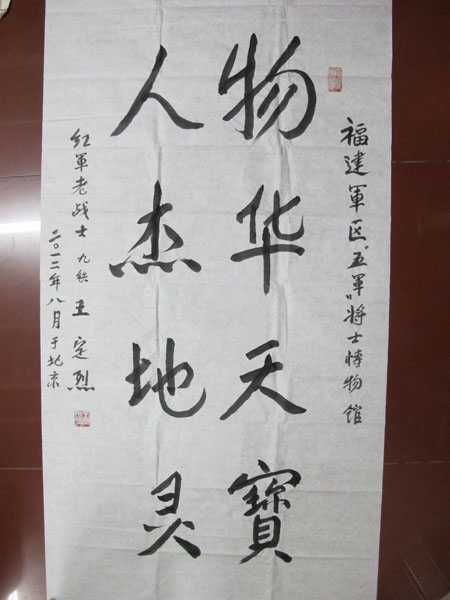 福建軍区“五軍”将士博物馆
物华天寶
人杰地灵
红軍老战士 九秩 王定烈
二〇一三年八月于北京